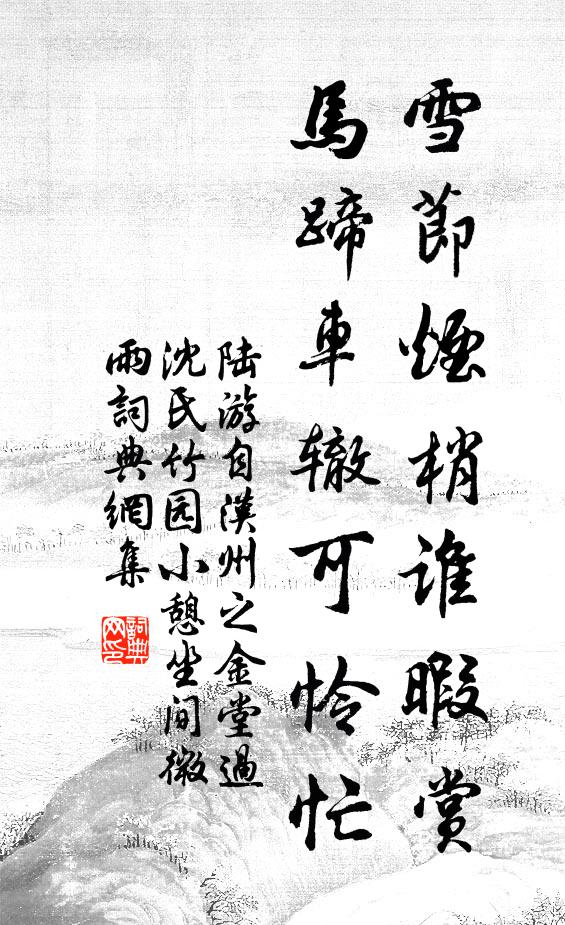 雪節煙梢誰暇賞
馬蹄車辙可怜忙
陆游自漢州之金堂過
沈氏竹园小憩坐间微
雨詞典網集
詞典
网印